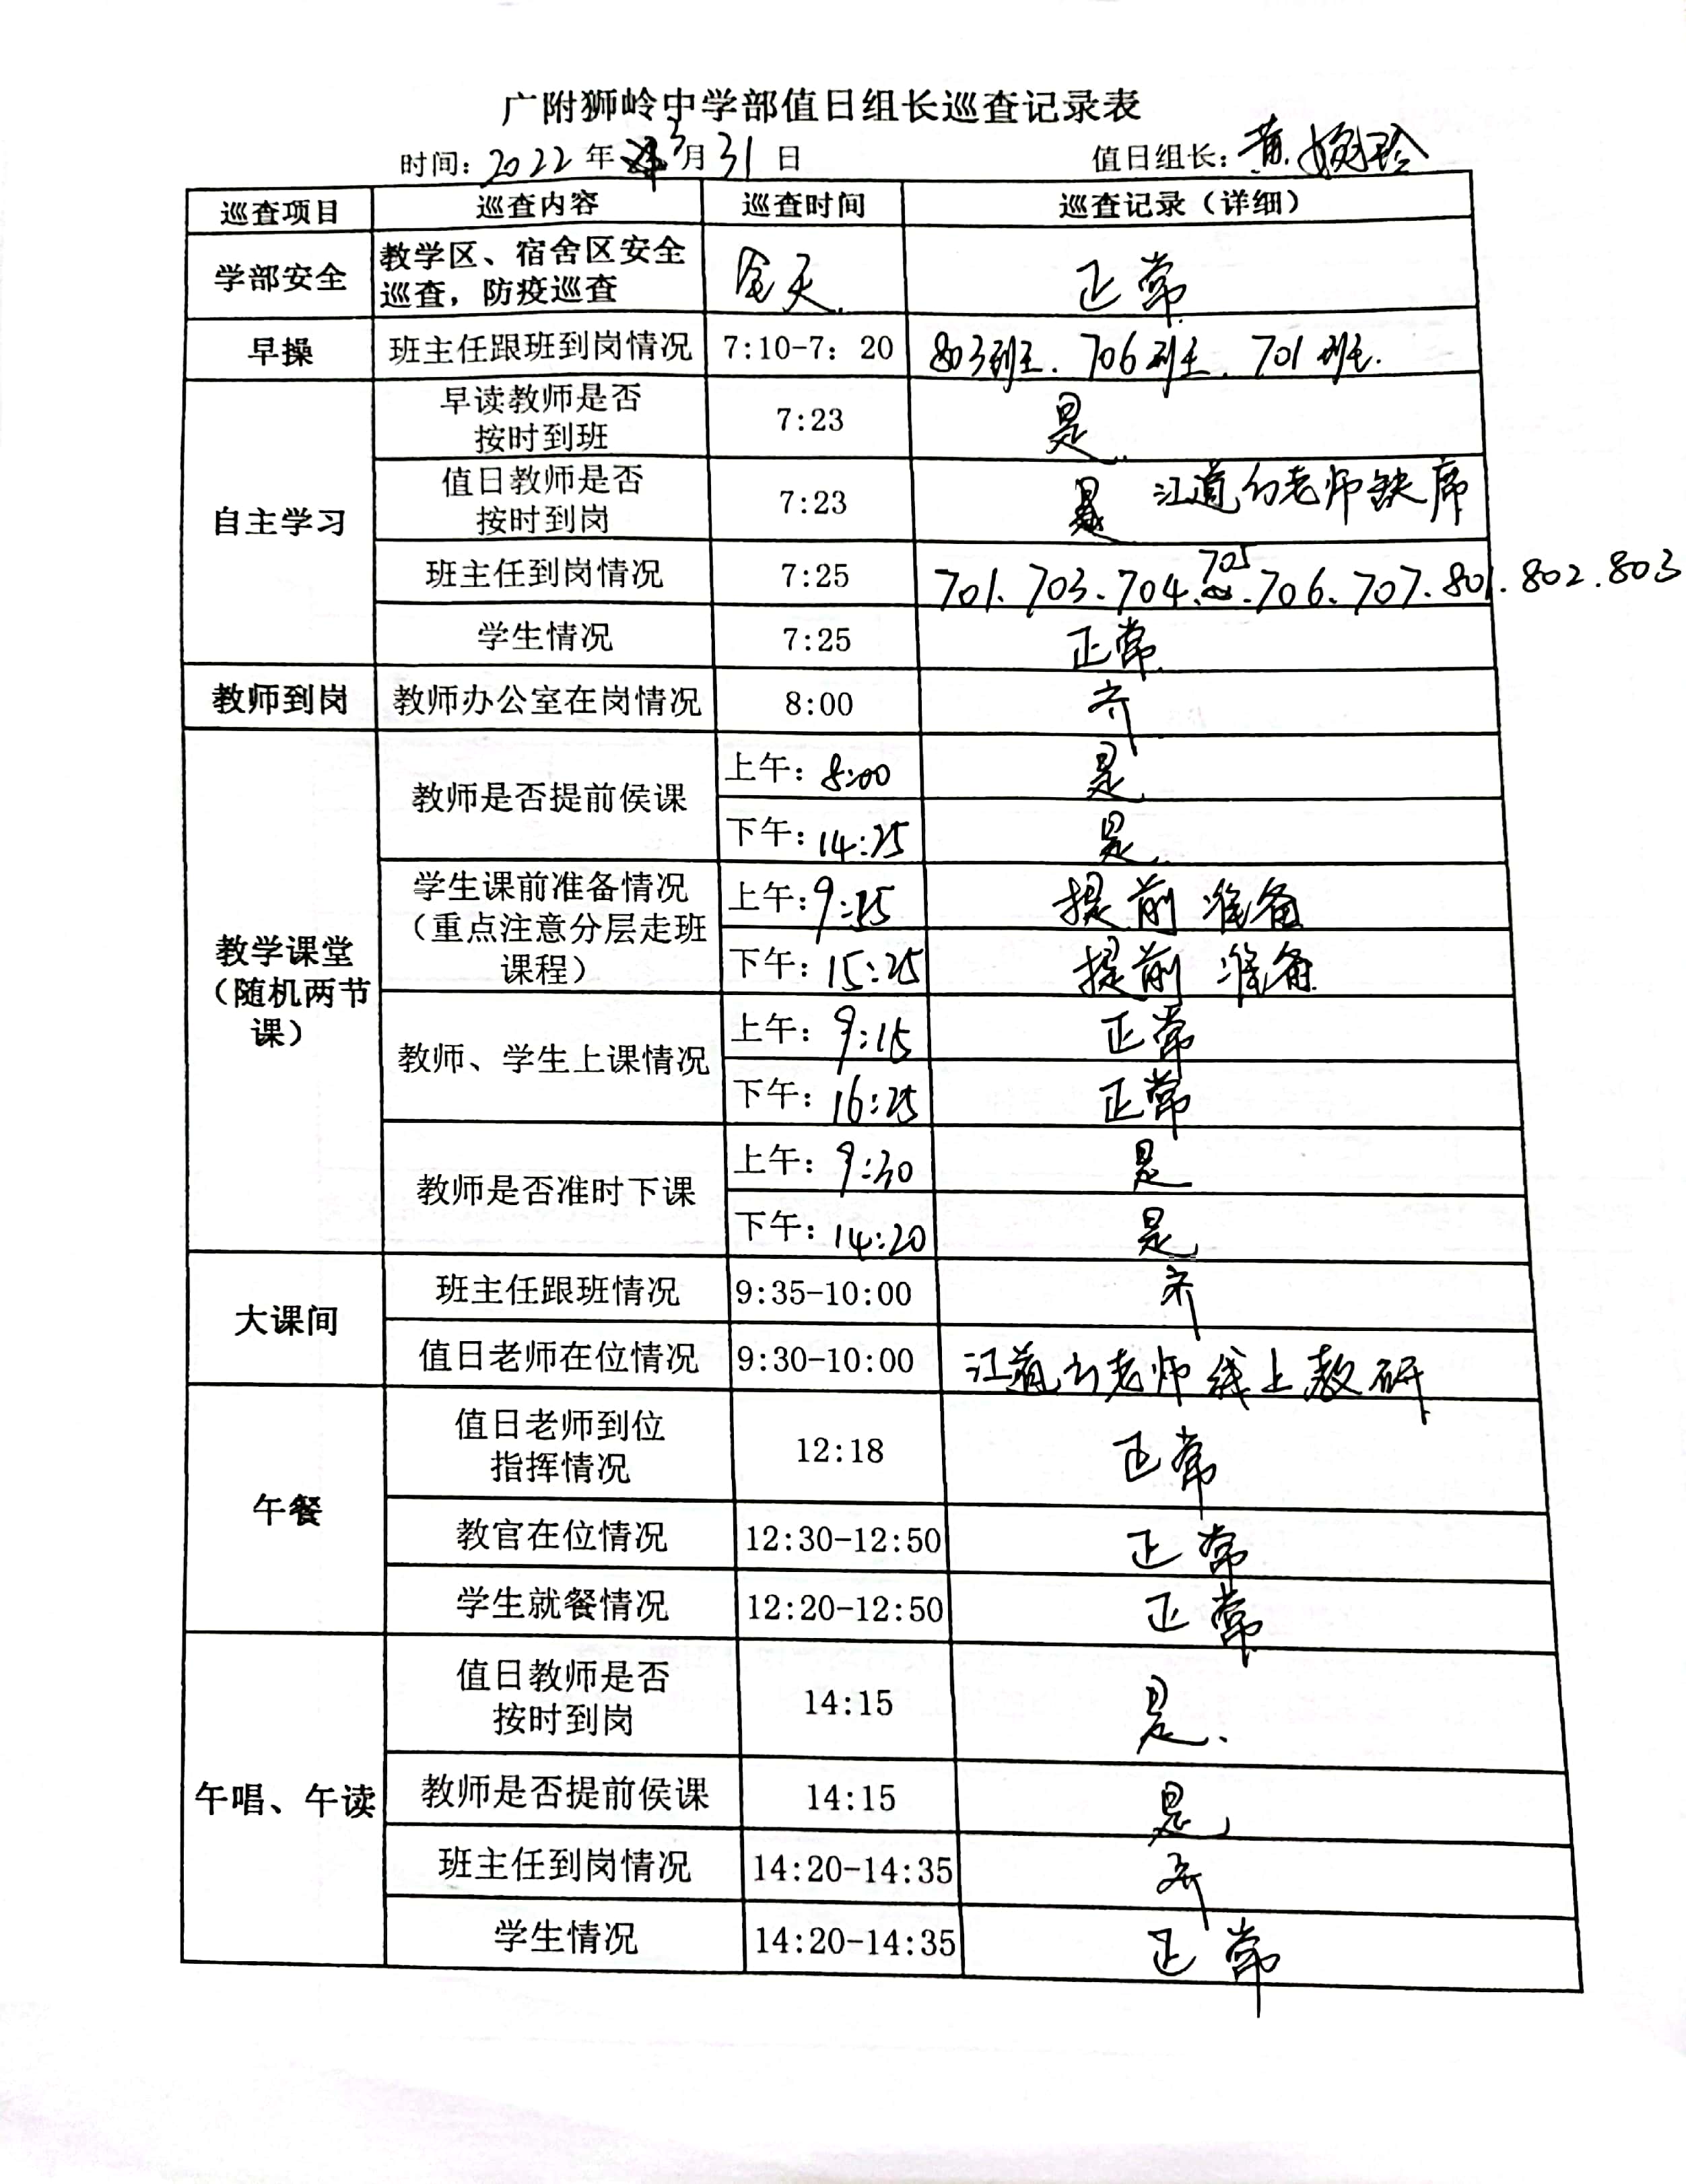 广附狮岭中学部值日组长巡查记录表
时间：2022年3月31日 值日组长：黄婉玲
巡查项目 巡查内容 巡查时间 巡查记录（详细）
学部安全 教学区、宿舍区安全 全天 正常
巡查，防疫巡查
早操 班主任跟班到岗情况 7:10-7：20 803班主. 706班主. 701班主.
自主学习
早读教师是否 7:23 是
按时到班
值日教师是否 7:23 江道 老师缺席
按时到岗
班主任到岗情况 7:25 701.703.704.705.706.707.801.802.803
学生情况 7:25 正常
教师到岗 教师办公室在岗情况 8:00 齐
教学课堂
（随机两节
课）
教师是否提前侯课 上午：8:00 是
下午：14:25 是
学生课前准备情况 上午：9:25 提前准备
（重点注意分层走班
课程） 下午：15:25 提前准备
教师、学生上课情况 上午：9:15 正常
下午：16:25 正常
教师是否准时下课 上午：9:30 是
下午：14:20 是
大课间 班主任跟班情况 9:35-10:00 齐
值日老师在位情况 9:30-10:00 江道 老师线上教研
午餐
值日老师到位 12:18 正常
指挥情况
教官在位情况 12:30-12:50 正常
学生就餐情况 12:20-12:50 正常
午唱、午读
值日教师是否 14:15 是.
按时到岗
教师是否提前侯课 14:15 是
班主任到岗情况 14:20-14:35 齐
学生情况 14:20-14:35 正常